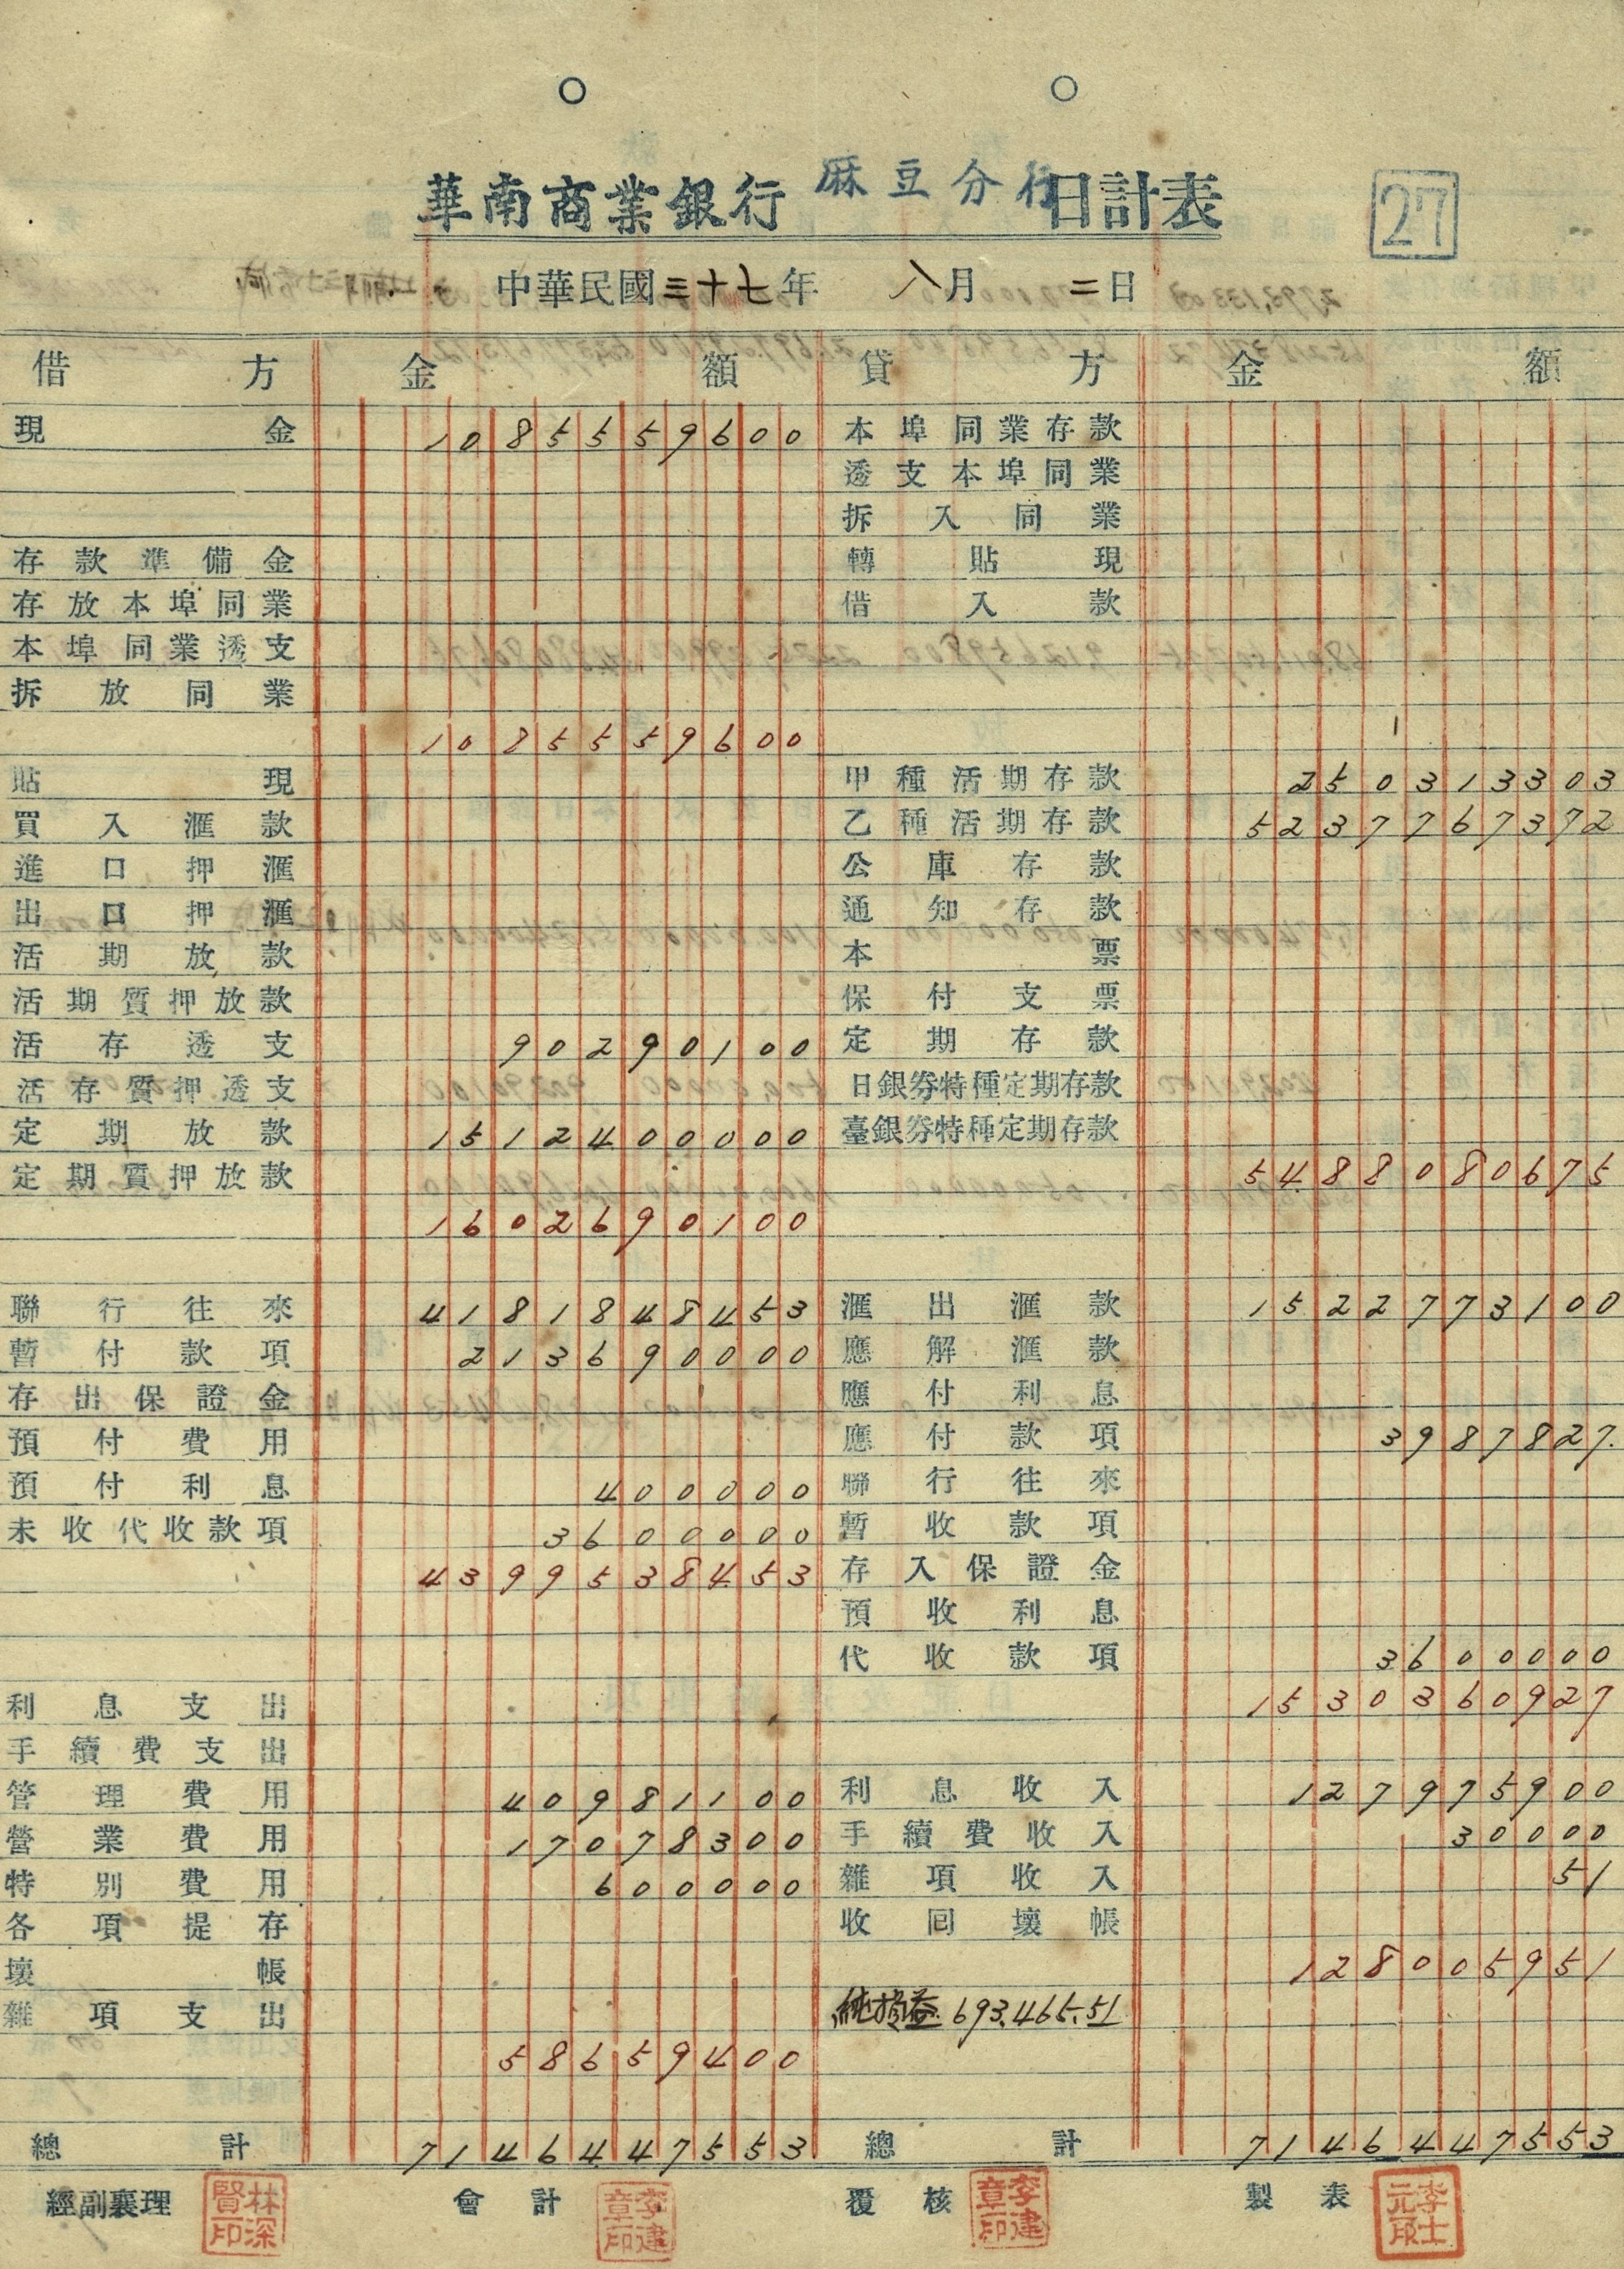 華南商業銀行 麻豆分行 日計表
27
中華民國三十七年 八月 二日
借方 金額 貸方 金額
現金 1085559600 本埠同業存款
透支本埠同業
拆入同業
存款準備金 轉貼現
存放本埠同業 借入款
本埠同業透支
拆放同業
1085559600
貼現 甲種活期存款 250313303
買入滙款 乙種活期存款 5237767372
進口押滙 公庫存款
出口押滙 通知存款
活期放款 本票
活期質押放款 保付支票
活存透支 90290100 定期存款
活存質押透支 日銀券特種定期存款
定期放款 1512400000 臺銀券特種定期存款
定期質押放款 5488080675
1602690100
聯行往來 4181848453 滙出滙款 1522773100
暫付款項 213690000 應解滙款
存出保證金 應付利息
預付費用 應付款項 3987827
預付利息 400000 聯行往來
未收代收款項 3600000 暫收款項
4399538453 存入保證金
預收利息
代收款項 3600000
利息支出 1530360927
手續費支出
管理費用 40981100 利息收入 127975900
營業費用 17078300 手續費收入 30000
特別費用 600000 雜項收入 51
各項提存 收回壞帳
壞帳 128005951
雜項支出 純損益 693,465.51
58659400
總計 7146447553 總計 7146447553
經副襄理 林深賢印 會計 李建章印 覆核 李建章印 製表 李士元印